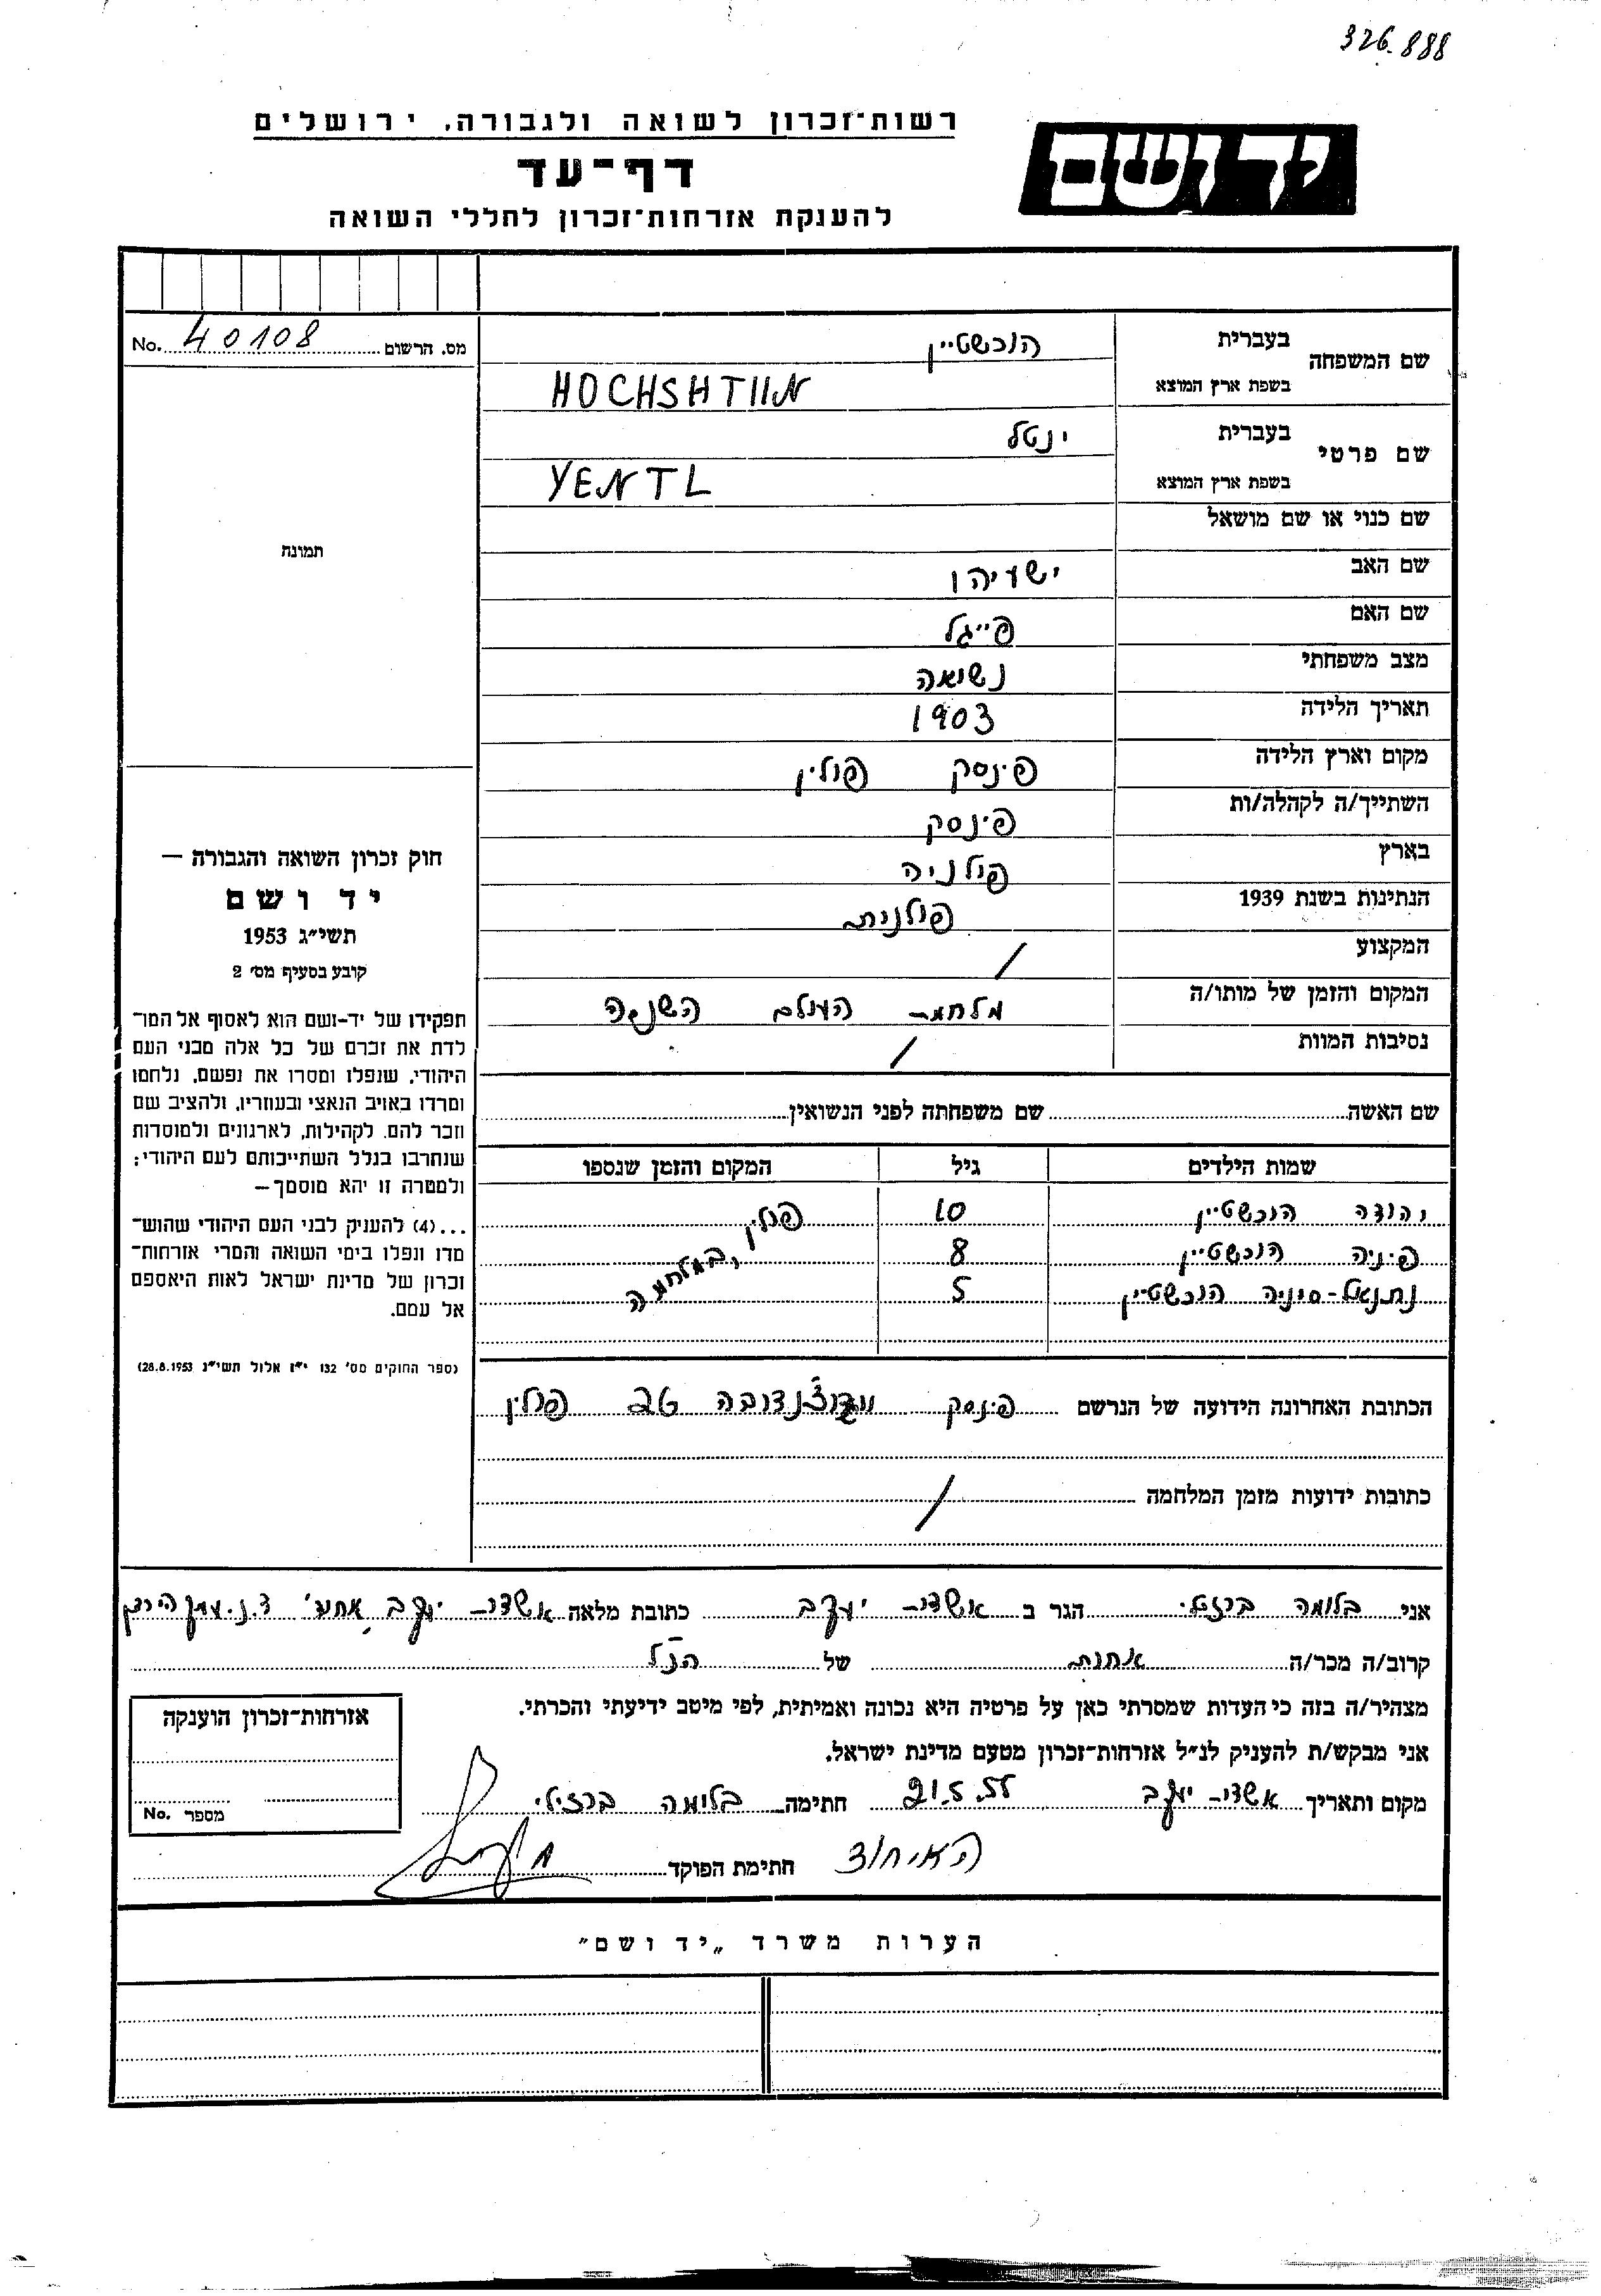 326.888
רשות־זכרון לשואה ולגבורה, ירושלים
יד ושם
דף־עד
להענקת אזרחות־זכרון לחללי השואה
מס. הרשום 40108 No.
שם המשפחה בעברית הוכשטיין
בשפת ארץ המוצא HOCHSHTIIN
שם פרטי בעברית ינטל
בשפת ארץ המוצא YENTL
שם כנוי או שם מושאל
שם האב ישעיהו
שם האם פייגל
מצב משפחתי נשואה
תאריך הלידה 1903
מקום וארץ הלידה פינסק פולין
השתייך/ה לקהלה/ות פינסק
בארץ פולניה
הנתינות בשנת 1939 פולנית
המקצוע /
המקום והזמן של מותו/ה מלחמת העולם השניה
נסיבות המוות /
תמונה
חוק זכרון השואה והגבורה —
יד ושם
תשי״ג 1953
קובע בסעיף מס׳ 2
תפקידו של יד-ושם הוא לאסוף אל המו־
לדת את זכרם של כל אלה מבני העם
היהודי, שנפלו ומסרו את נפשם, נלחמו
ומרדו באויב הנאצי ובעוזריו, ולהציב שם
וזכר להם, לקהילות, לארגונים ולמוסדות
שנחרבו בגלל השתייכותם לעם היהודי;
ולמטרה זו יהא מוסמך—
...(4) להעניק לבני העם היהודי שהוש־
מדו ונפלו בימי השואה והמרי אזרחות־
זכרון של מדינת ישראל לאות היאספם
אל עמם.
(ספר החוקים מס׳ 132 י״ז אלול תשי״ג 28.8.1953)
שם האשה שם משפחתה לפני הנשואין
שמות הילדים גיל המקום והזמן שנספו
יהודה הוכשטיין 10 פולין, במלחמה
פיניה הוכשטיין 8
נתנאל-סיניה הוכשטיין 5
הכתובת האחרונה הידועה של הנרשם פינסק 26 פולין
כתובות ידועות מזמן המלחמה /
אני בלומה ברזילי הגר ב אשדות יעקב כתובת מלאה אשדות יעקב ד.נ. עמק הירדן
קרוב/ה מכר/ה אחות של הנ״ל
מצהיר/ה בזה כי העדות שמסרתי כאן על פרטיה היא נכונה ואמיתית, לפי מיטב ידיעתי והכרתי.
אני מבקש/ת להעניק לנ״ל אזרחות־זכרון מטעם מדינת ישראל.
מקום ותאריך אשדות יעקב 21.5.55 חתימה בלומה ברזילי
האיחוד
חתימת הפוקד
אזרחות־זכרון הוענקה
מספר No.
הערות משרד „יד ושם״